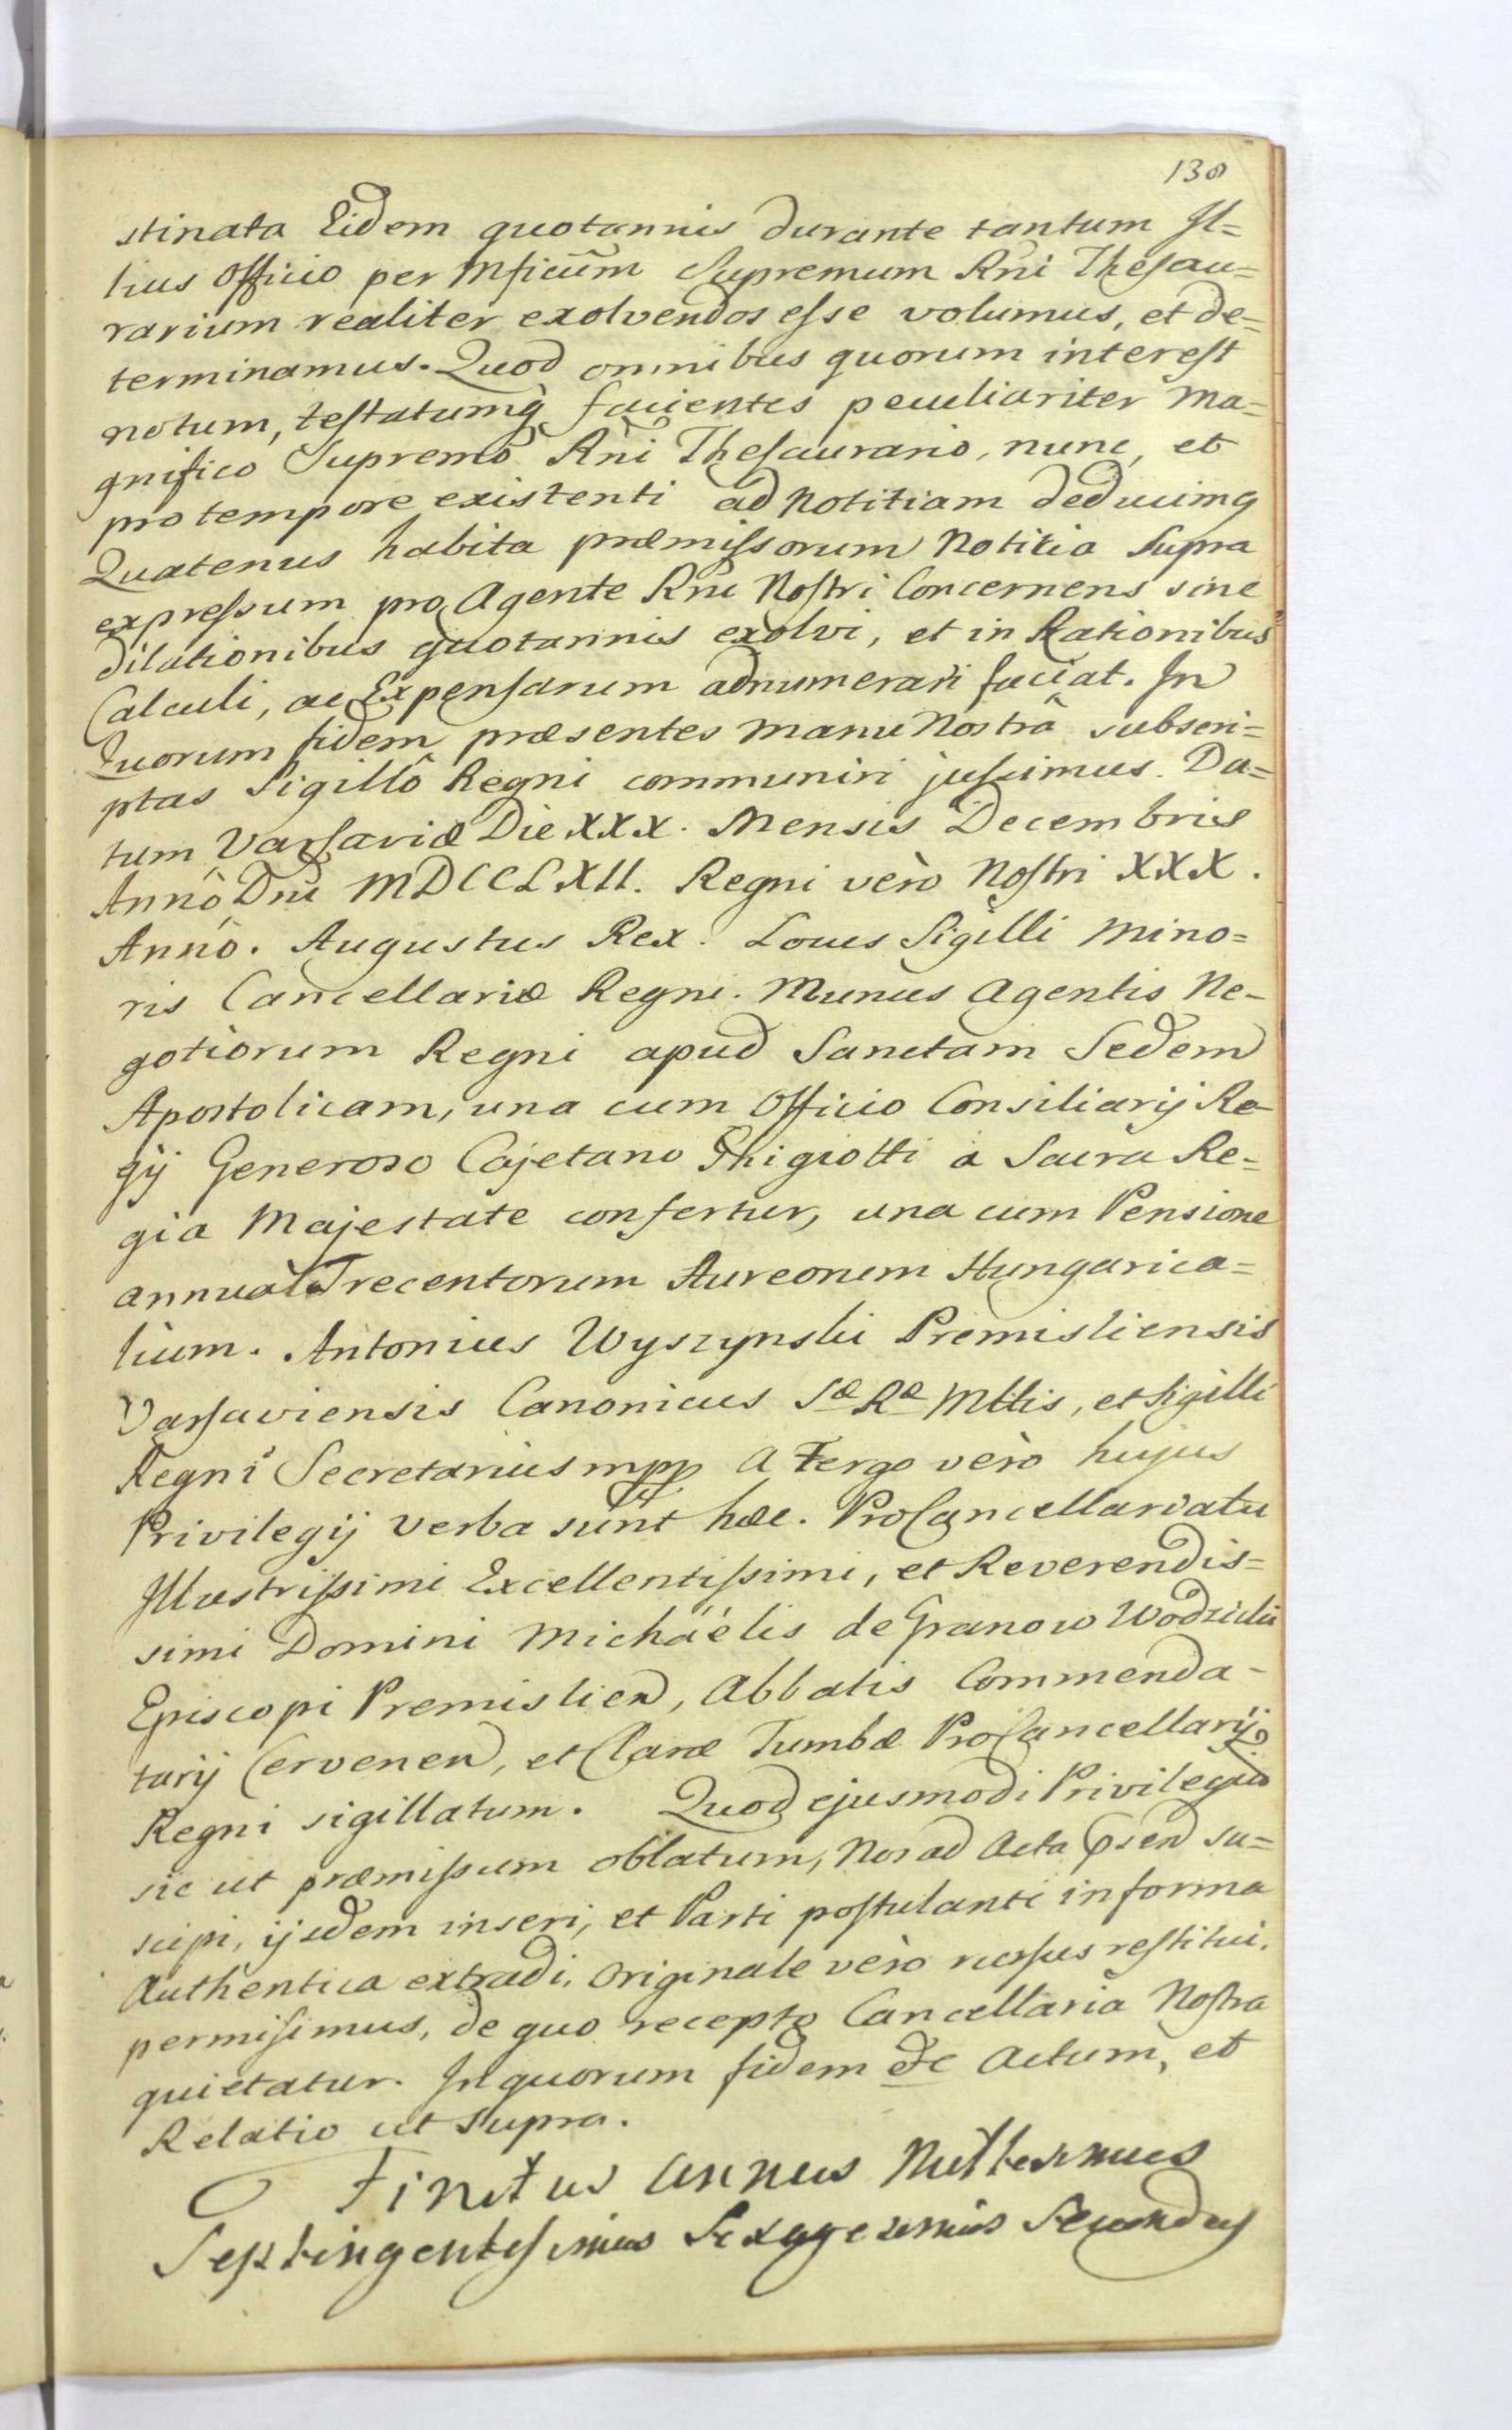 130
stinata Eidem quotannis durante tantum Il=
lius Officio per Mficum Supremum Rni Thesau=
rarium realiter exolvendos esse volumus, et de=
terminamus. Quod omnibus quorum interest
notum, testatumq facientes peculiariter Ma=
gnifico Supremô Rni Thesaurario, nunc, et
pro tempore existenti ad Notitiam deducimg
Quatenus habita præmissorum Notitia Supra
expressum pro Agente Rni Nostri Concernens sine
dilationibus quotannis exolvi, et in Rationibus
Calculi, ac Expensarum adnumerari faciat. In
Quorum fidem præsentes manu Nostrâ subscri=
ptas Sigillô Regni communiri jussimus. Da=
tum Varsaviæ Die XXX. Mensis Decembris
Annô Dni MDCCLXII. Regni verò Nostri XXX.
Annô. Augustus Rex. Locus Sigilli Mino=
ris Cancellariæ Regni. Munus Agentis Ne-
gotiorum Regni apud Sanctam Sedem
Apostolicam, una cum Officio Consiliarij Re-
gij Generoso Cajetano Ghigiotti à Sacra Re=
gia Majestate confertur, una cum Pensione
annuâ Trecentorum Aureorum Hungarica=
lium. Antonius Wyszynski Premisliensis
Varsaviensis Canonicus Sæ Ræ Mttis, et Sigilli
Regni Secretarius mpp A Tergo verò hujus
Privilegij verba sunt hæc. ProCancellariatu
Illustrissimi Excellentissimi, et Reverendis=
simi Domini Michaëlis de Granow Wodzicki
Episcopi Premislien, Abbatis Commenda-
tarij Cervenen, et Claræ Tumbæ ProCancellarij
Regni sigillatum. Quod ejusmodi Privilegio
sic ut præmissum oblatum, Nos ad Acta psen su=
scipi, ijsdem inseri, et Parti postulanti in forma
Authentica extradi, Originale verò rursus restitui.
permisimus, de quo recepto Cancellaria Nostra
quietatur. In quorum fidem &c Actum, et
Relatio ut supra.
Finitus Annus Millesimus
Septingentesimus Sexagesimus Secundus